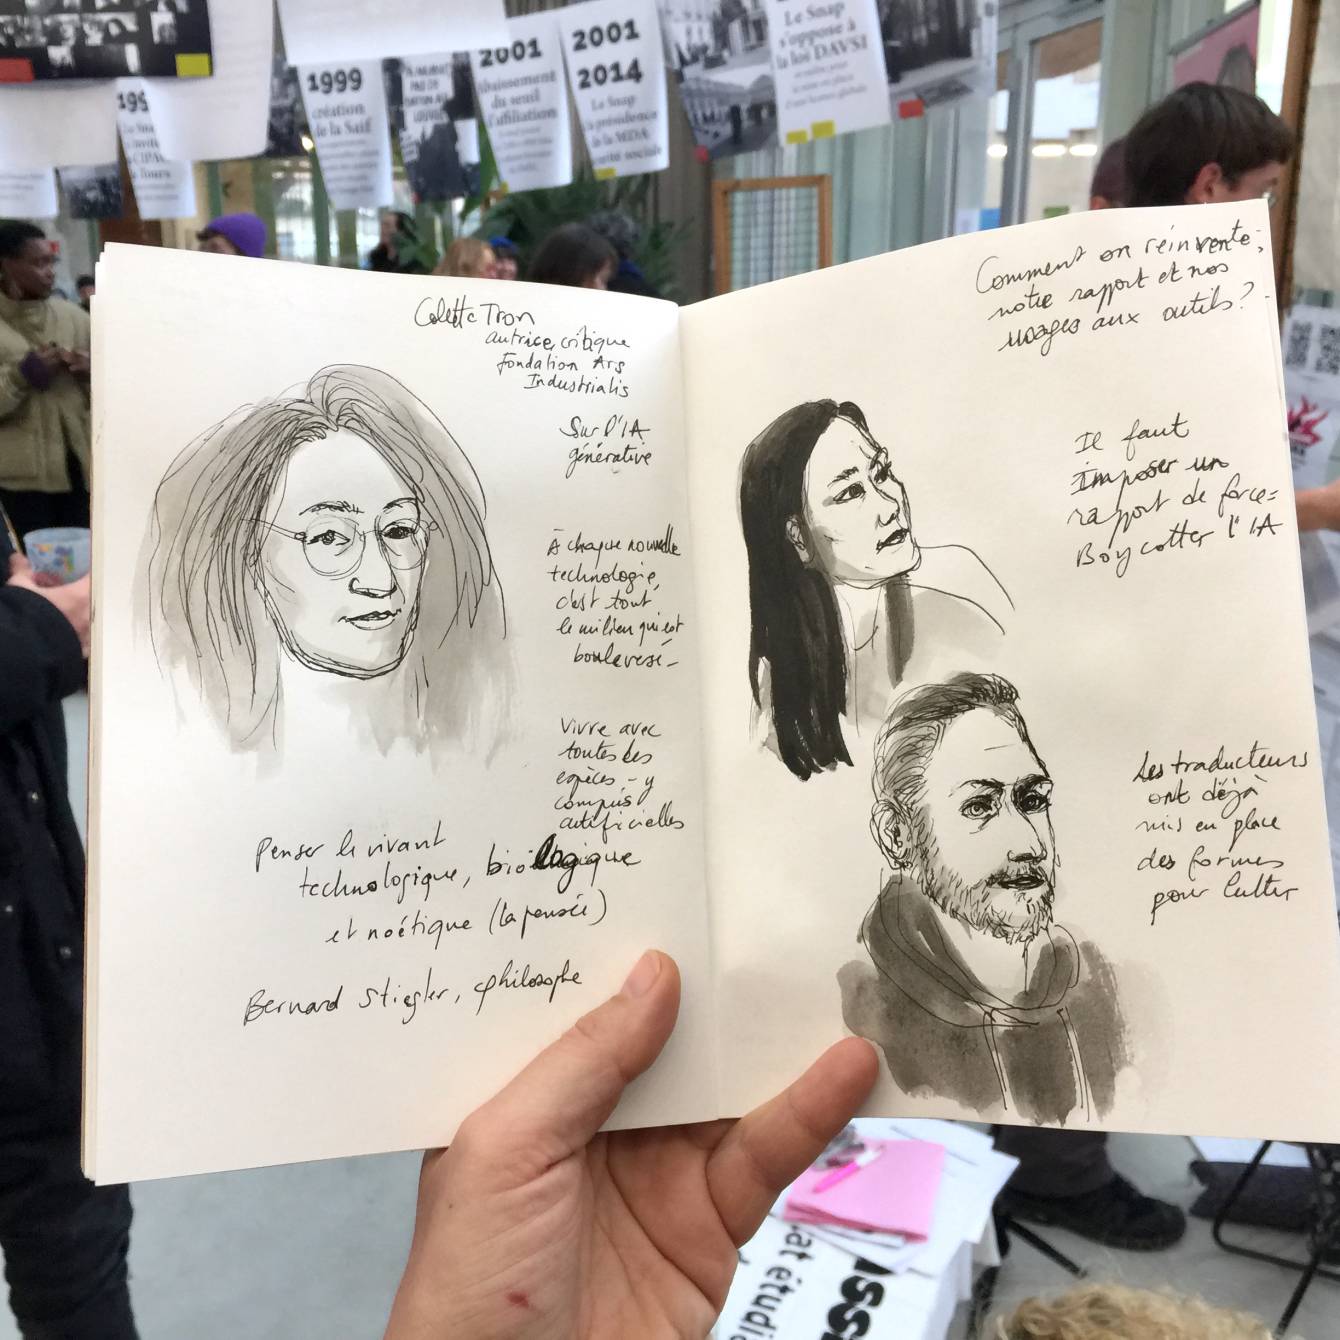 1999
création
de la Saif
2001
abaissement
du seuil
d'affiliation
2001
2014
Le Snap
présidence
de la MDA
Le Snap
s'oppose à
la loi DAVSI
Colette Tron
autrice, critique
Fondation Ars
Industrialis
Sur l'IA
générative
À chaque nouvelle
technologie,
c'est tout
le milieu qui est
bouleversé -
Vivre avec
toutes les
espèces - y
compris
artificielles
Penser le vivant
technologique, biologique
et noétique (la pensée)
Bernard Stiegler, philosophe
Comment on réinvente
notre rapport et nos
usages aux outils ?
Il faut
imposer un
rapport de force =
Boycotter l'IA
Les traducteurs
ont déjà
mis en place
des formes
pour lutter